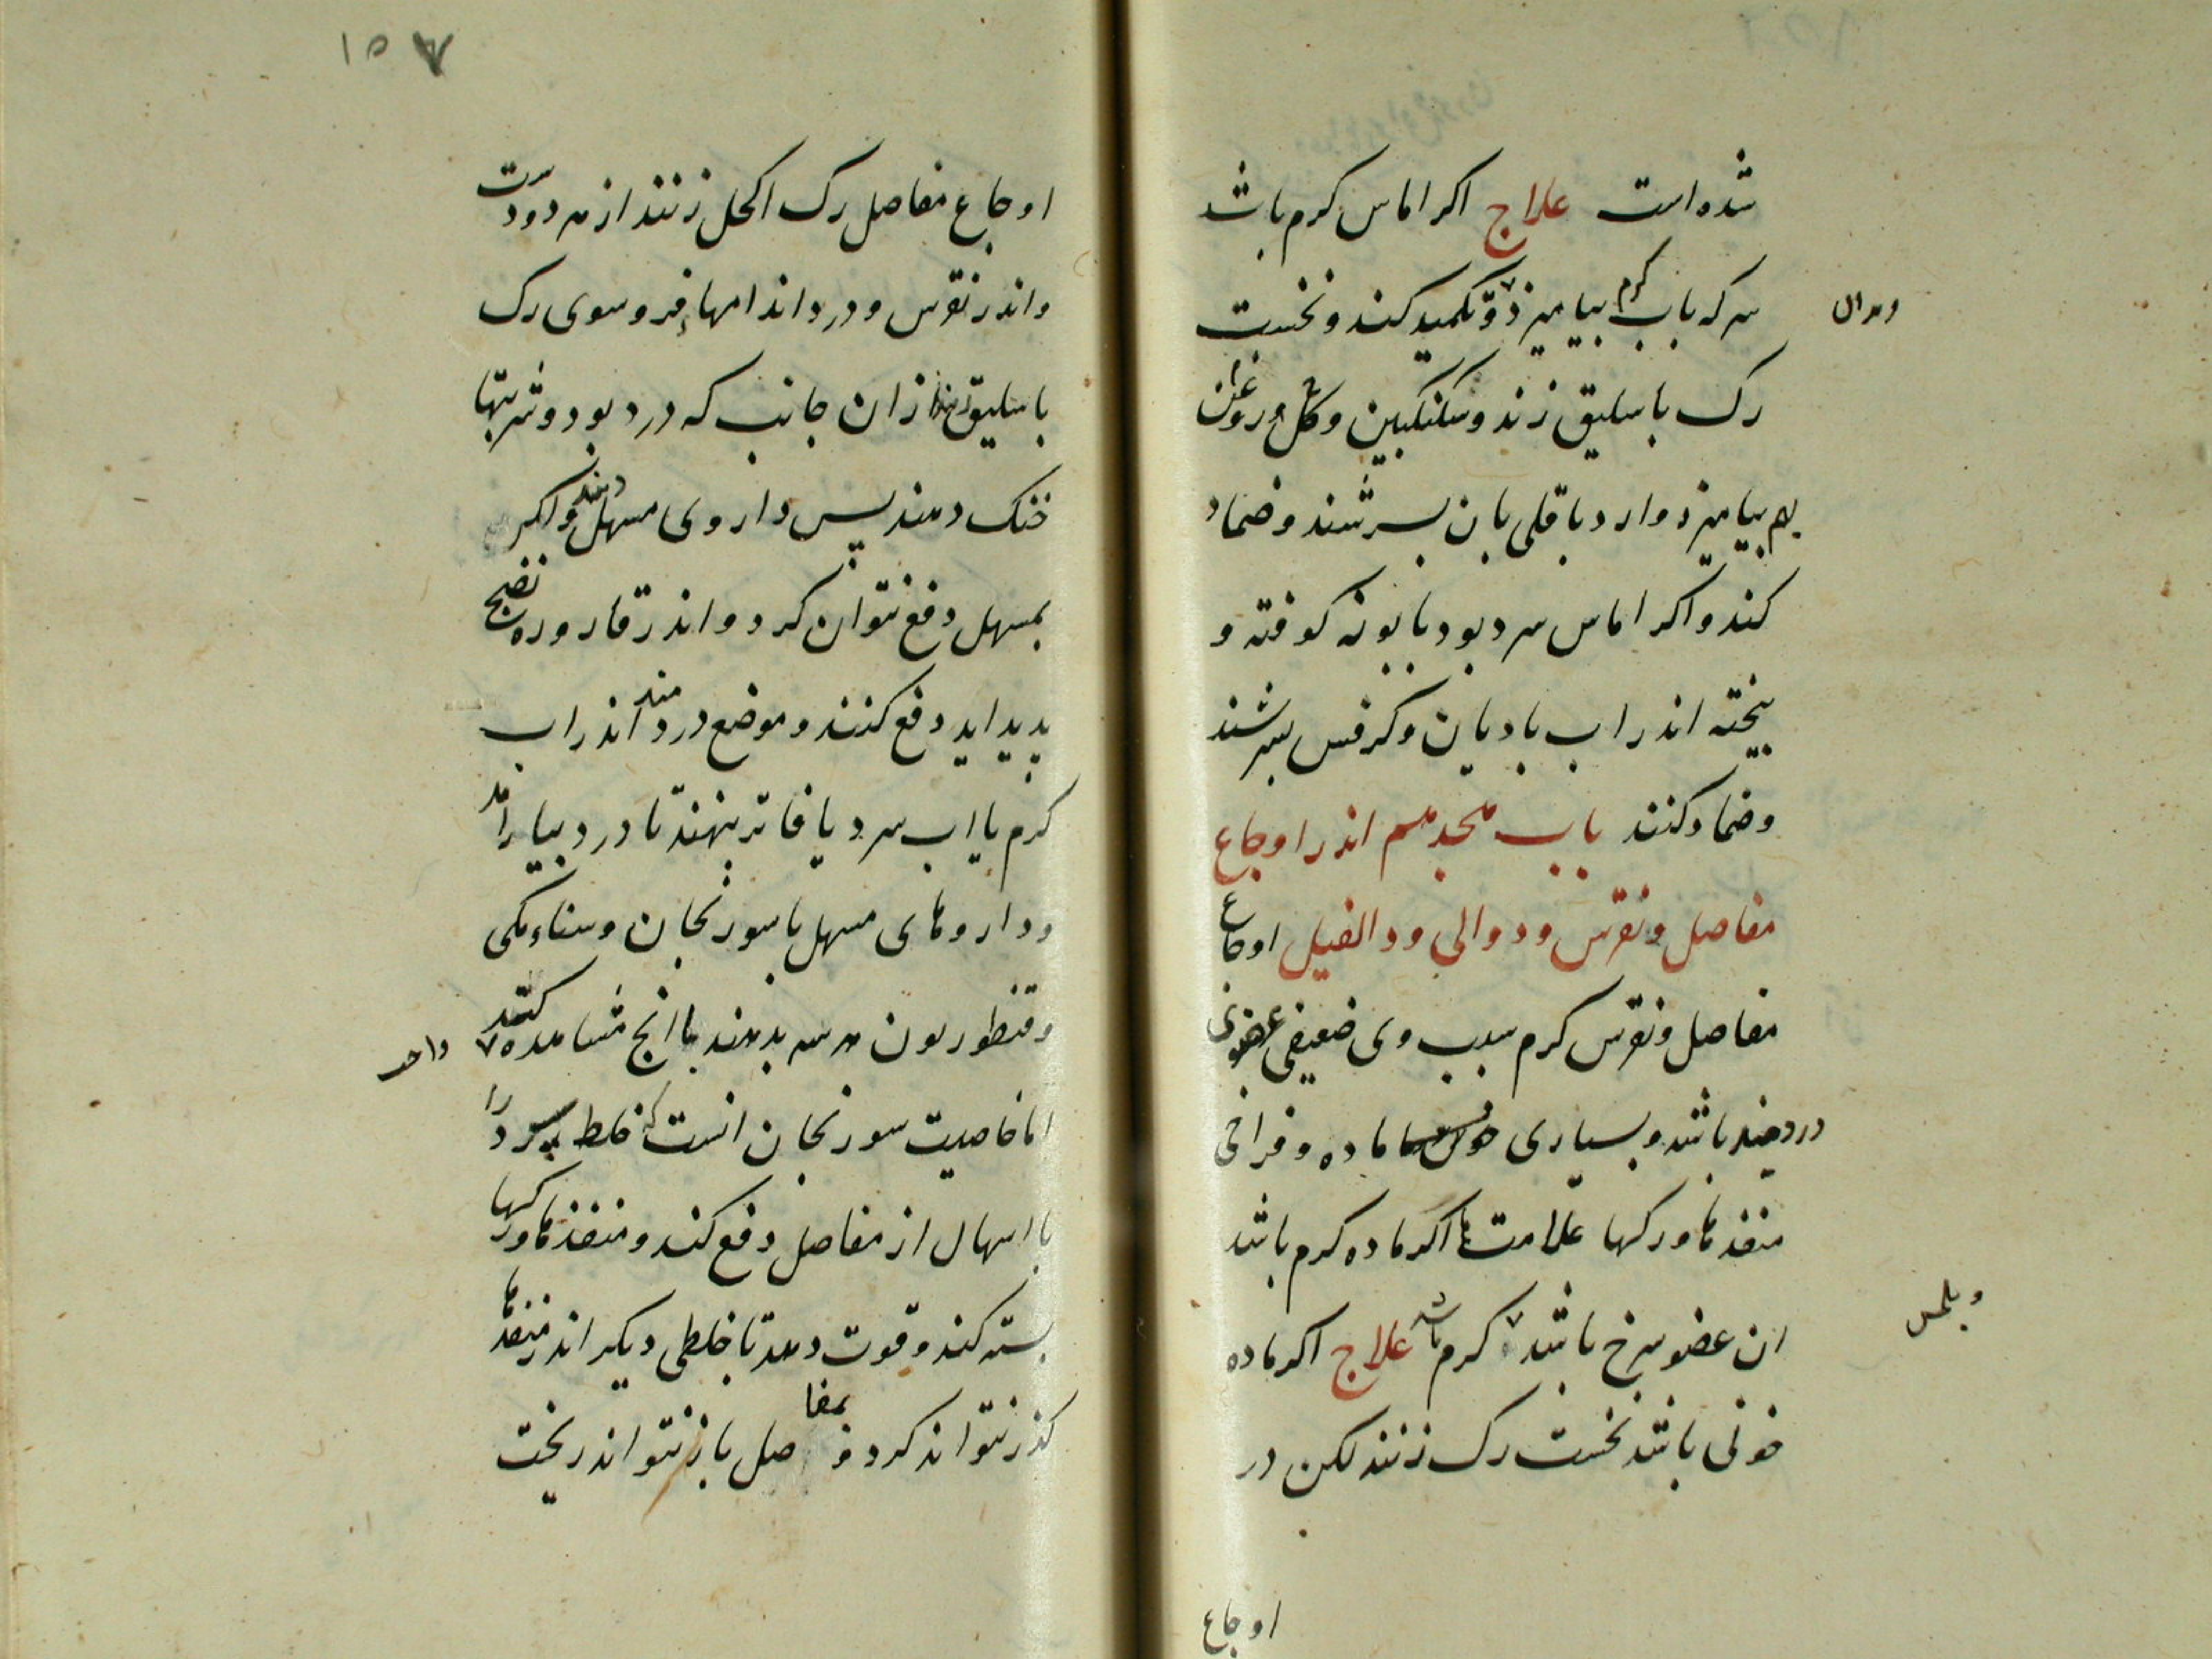 شده است علاج اکر اماس کرم باشد
سرکه باب کرم بیامیزذ و تکمید کند و نخست
وبدان
رک باسلیق زند و سکنکبین و کل و روغن
بهم بیامیزذ و ارد باقلی بان بسرشند و ضماد
کند و اکر اماس سرد بود بابونه کوفته و
بیخته اندر اب بادیان و کرفس بسرشند
و ضماد کنند باب هجدهم اندر اوجاع
مفاصل و نقرس و دوالی و دا الفیل اوجاع
مفاصل و نقرس کرم سبب وی ضعیفی عضوی
دردمند باشد و بسیاری ماده و فراخی
منفذها و رکها علامتها اکر ماده کرم باشد
ان عضو سرخ باشد کرم باشد علاج اکر ماده
وبلمس
خونی باشد نخست رک زنند لکن در
اوجاع
۱۵۷
اوجاع مفاصل رک اکحل زنند از هر دو دست
و اندر نقرس و درد اندامهاء فروسوی رک
باسلیق زنند از ان جانب که درد بود و شربتها
خنک دهند پس داروی مسهل دهند و اکر
بمسهل دفع نتوان کرد و اندر قاروره نضج
پدید اید دفع کنند و موضع دردمند اندر اب
کرم یا اب سرد یا فاتر بنهند تا درد بیارامد
و داروهای مسهل با سورنجان و سناء مکی
و قنطوریون هر سه بدهند با انج مشاهده کنند
واحد
اما خاصیت سورنجان انست که خلط را
با اسهال از مفاصل دفع کند و منفذها و رکها
بسته کند و قوت دهد تا خلطی دیکر اندر منفذها
کذر نتواند کرد و بمفاصل باز نتواند ریخت